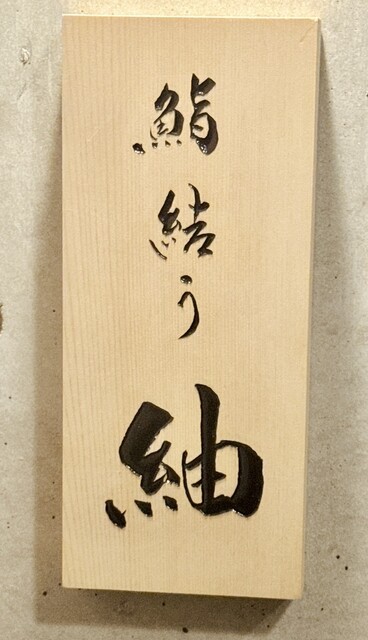 鮨 結う 紬